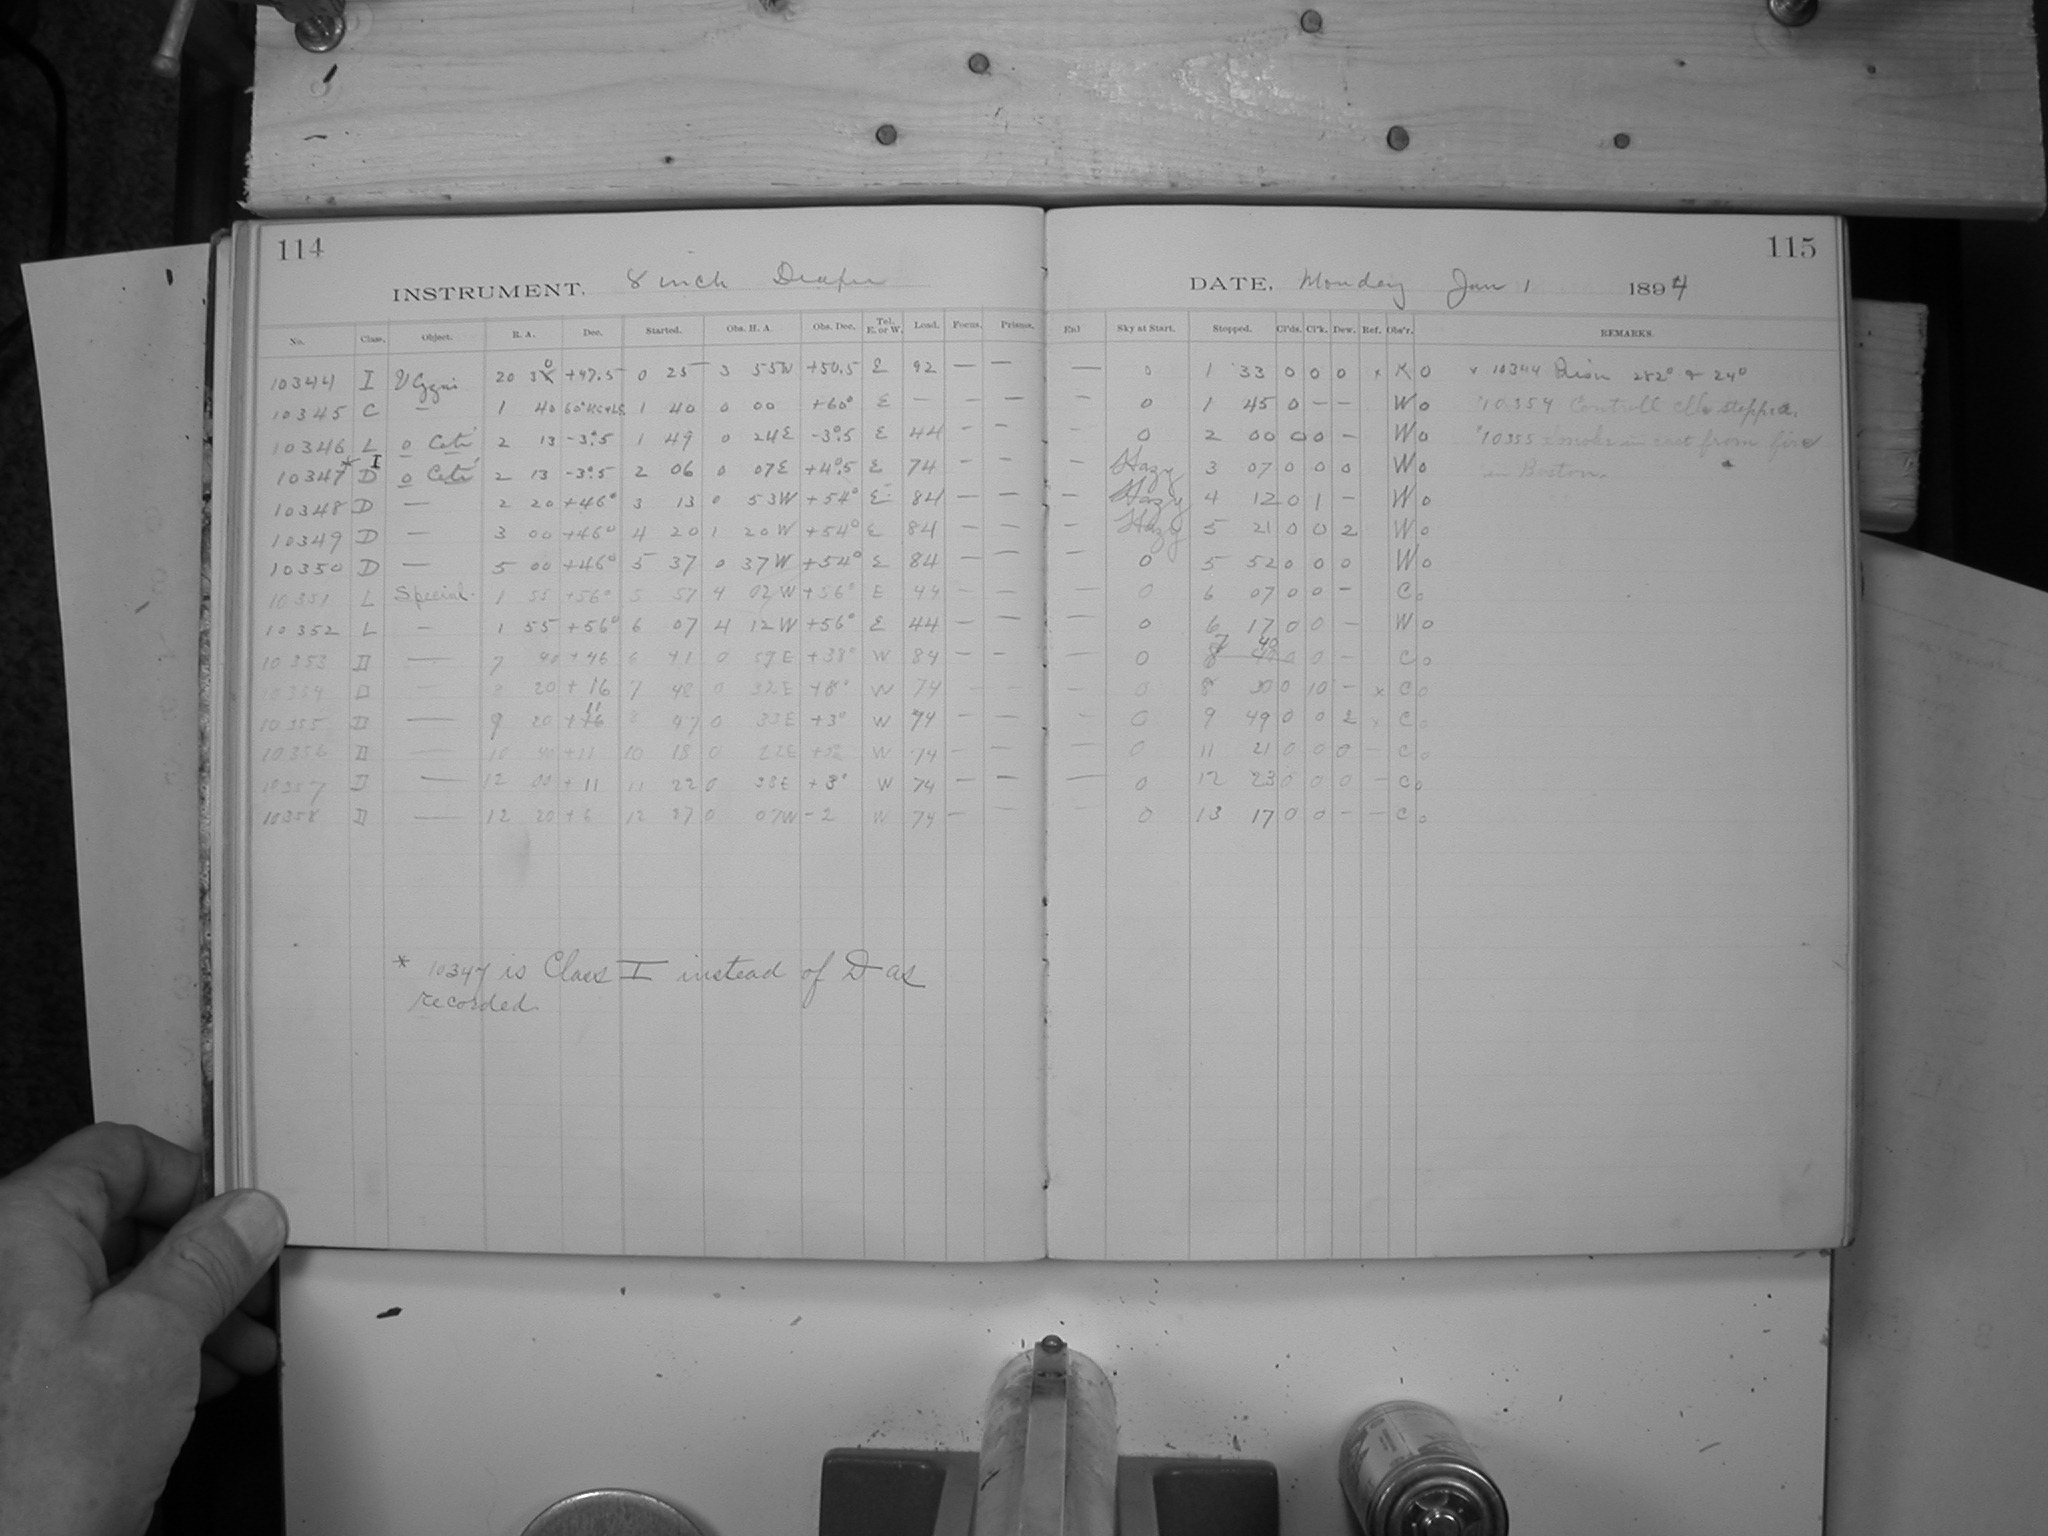 114
115
INSTRUMENT. 8 inch Draper
DATE, Monday Jan 1 1894
No. Class. Object. R. A. Dec. Started. Obs. H. A. Obs. Dec. Tel. E. or W. Load. Focus. Prisms. Enl Sky at Start. Stopped. Cl'ds. Cl'k. Dew. Ref. Obs'r. REMARKS.
10344 I V Cygni 20 30 +47.5 0 25 3 55W +50.5 E 92 — — — 0 1 33 0 0 0 x K 0 x 10344 282° & 24°
10345 C — 1 40 60° 1 40 0 00 +60° E — — — 0 1 45 0 — — W 0 10354 Controll stopped.
10346 L o Ceti 2 13 -3°.5 1 49 0 24E -3°.5 E 44 — — — 0 2 00 0 0 — W 0 10355 smoke in east from fire
10347* D I o Ceti 2 13 -3°.5 2 06 0 07E +4°.5 E 74 — — — Hazy 3 07 0 0 0 W 0 in Boston.
10348 D — 2 20 +46° 3 13 0 53W +54° E 84 — — — Hazy 4 12 0 1 — W 0
10349 D — 3 00 +46° 4 20 1 20W +54° E 84 — — — Hazy 5 21 0 0 2 W 0
10350 D — 5 00 +46° 5 37 0 37W +54° E 84 — — — 0 5 52 0 0 0 W 0
10351 L Special. 1 55 +56° 5 57 4 02W +56° E 44 — — — 0 6 07 0 0 — C 0
10352 L — 1 55 +56° 6 07 4 12W +56° E 44 — — — 0 6 17 0 0 — W 0
10353 D — 7 40 +46 6 41 0 59E +38° W 84 — — — 0 7 40 0 0 — C 0
10354 D — 8 20 +16 7 48 0 32E +8° W 74 — — — 0 8 30 0 10 — x C 0
10355 D — 9 20 +11 8 47 0 33E +3° W 74 — — — 0 9 49 0 0 2 x C 0
10356 D — 10 40 +11 10 18 0 22E W 74 — — — 0 11 21 0 0 0 — C 0
10357 D — 12 00 +11 11 22 0 38E +3° W 74 — — — 0 12 23 0 0 0 — C 0
10358 D — 12 20 +6 12 27 0 07W -2 W 74 — — — 0 13 17 0 0 — — C 0
* 10347 is Class I instead of D as
recorded.